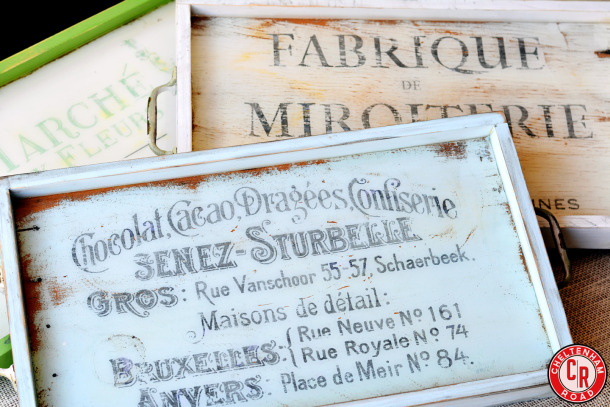 FABRIQUE
DE
MIROITERIE
INES
MARCHÉ
FLEURS
Chocolat, Cacao, Dragées, Confiserie
SENEZ-STURBELLE
GROS: Rue Vanschoor 55-57, Schaerbeek.
Maisons de détail:
BRUXELLES: { Rue Neuve No 161
Rue Royale No 74
ANVERS: Place de Meir No 84.
CHELTENHAM
CR
ROAD